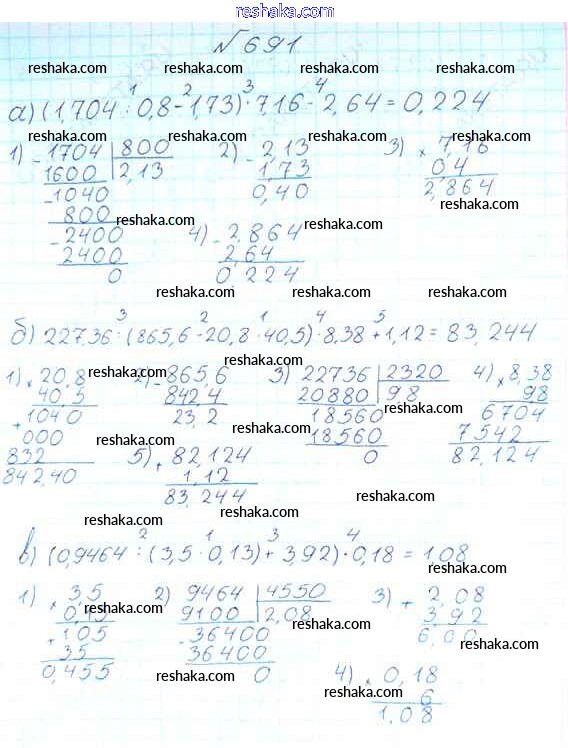 reshaka.com
№ 691
reshaka.com reshaka.com reshaka.com
1 2 3 4
а) (1,704 : 0,8 - 1,73) · 7,16 - 2,64 = 0,224
reshaka.com reshaka.com reshaka.com
1) - 1704 | 800 2) - 2,13 3) × 7,16
1600 2,13 1,73 0,4
- 1040 0,40 2,864
reshaka.com reshaka.com
800 reshaka.com reshaka.com
- 2400 4) - 2,864
2400 2,64
reshaka.com
0 0,224
reshaka.com reshaka.com reshaka.com
3 2 1 4 5
б) 227,36 : (865,6 - 20,8 · 40,5) · 8,38 + 1,12 = 83,244
reshaka.com
1) × 20,8 2) - 865,6 3) 22736 | 2320 4) × 8,38
reshaka.com reshaka.com
40,5 842,4 20880 9,8 9,8
+ 1040 23,2 18560 6704
reshaka.com
000 18560 7542
reshaka.com reshaka.com
832 5) + 82,124 0 82,124
842,40 1,12
reshaka.com reshaka.com
83,244
reshaka.com reshaka.com
2 1 3 4
в) (0,9464 : (3,5 · 0,13) + 3,92) · 0,18 = 1,08
reshaka.com reshaka.com
1) × 3,5 2) 9464 | 4550 3) + 2,08
0,13 9100 2,08 3,92
reshaka.com reshaka.com
+ 105 - 36400 6,00
reshaka.com reshaka.com
35 36400
0,455 0 4) × 0,18
reshaka.com reshaka.com
6
1,08
reshaka.com